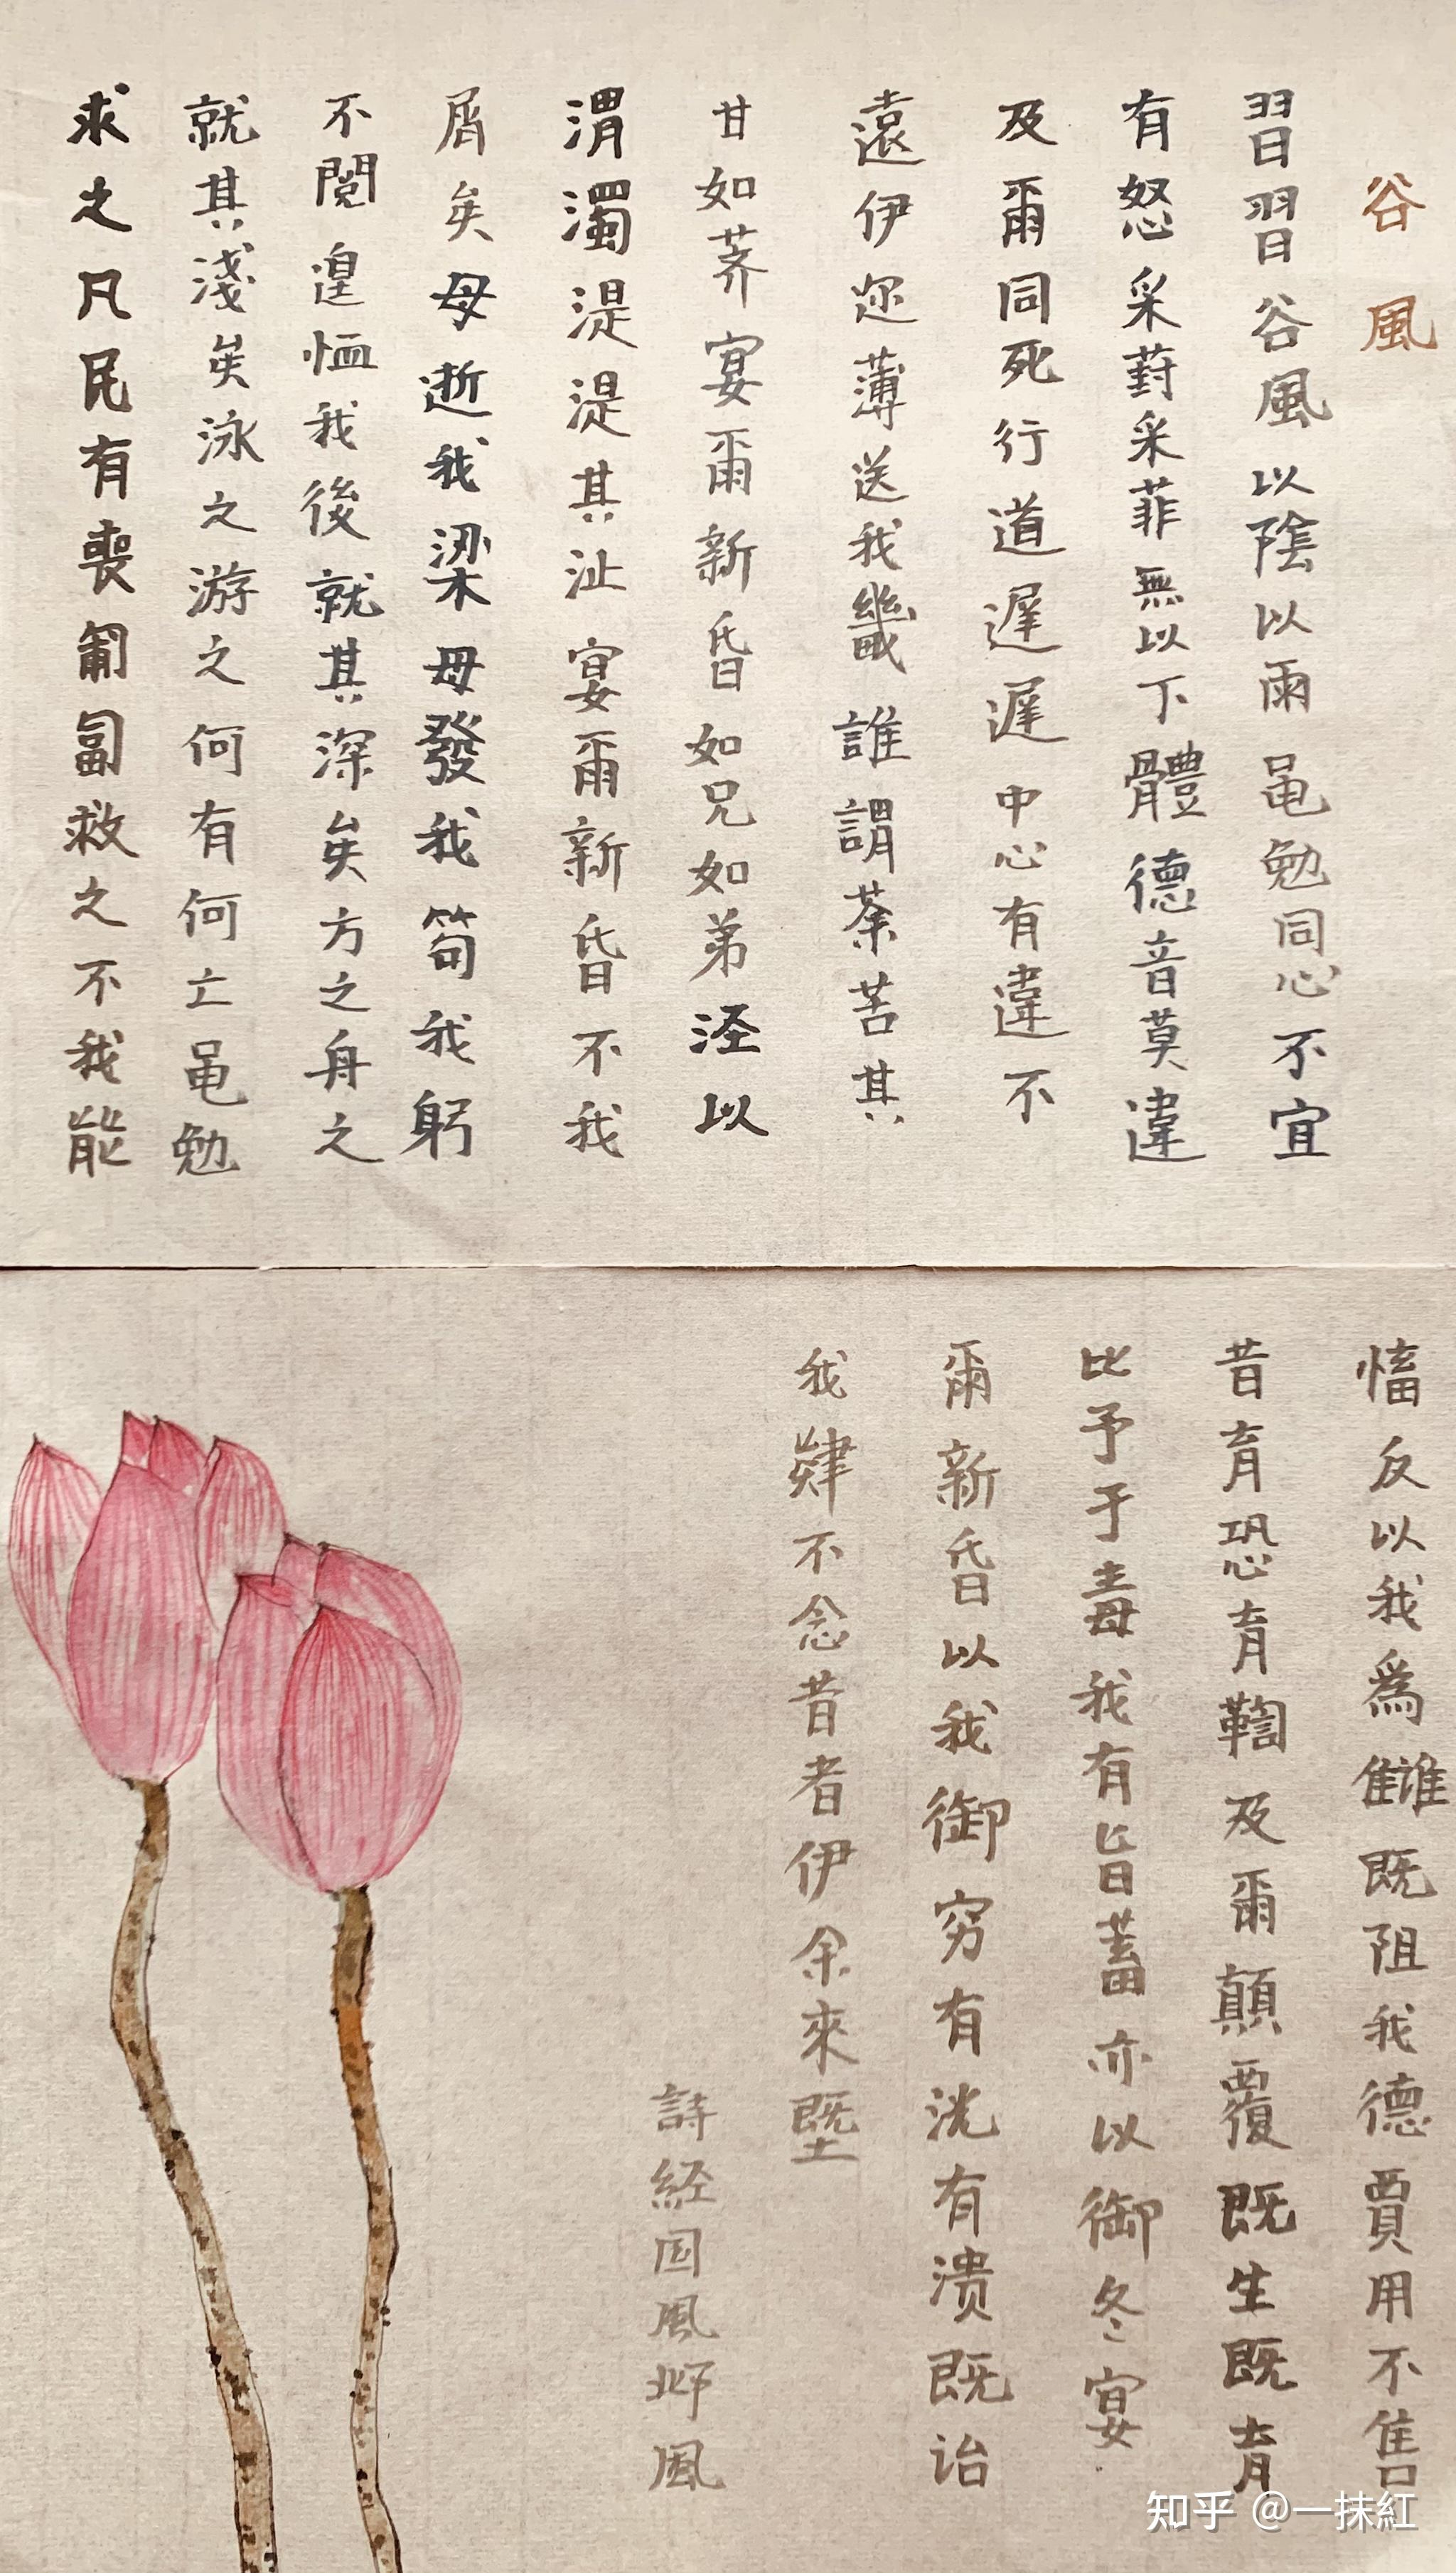 谷風
習習谷風以陰以雨黽勉同心不宜
有怒采葑采菲無以下體德音莫違
及爾同死行道遲遲中心有違不
遠伊迩薄送我畿誰謂荼苦其
甘如荠宴爾新昏如兄如弟泾以
渭濁湜湜其沚宴爾新昏不我
屑矣毋逝我梁毋發我筍我躬
不閱遑恤我後就其深矣方之舟之
就其淺矣泳之游之何有何亡黽勉
求之凡民有喪匍匐救之不我能
慉反以我為讎既阻我德賈用不售
昔育恐育鞫及爾顛覆既生既育
比予于毒我有旨蓄亦以御冬宴
爾新昏以我御穷有洸有溃既诒
我肄不念昔者伊余來塈
詩経国風邶風
知乎 @一抹紅